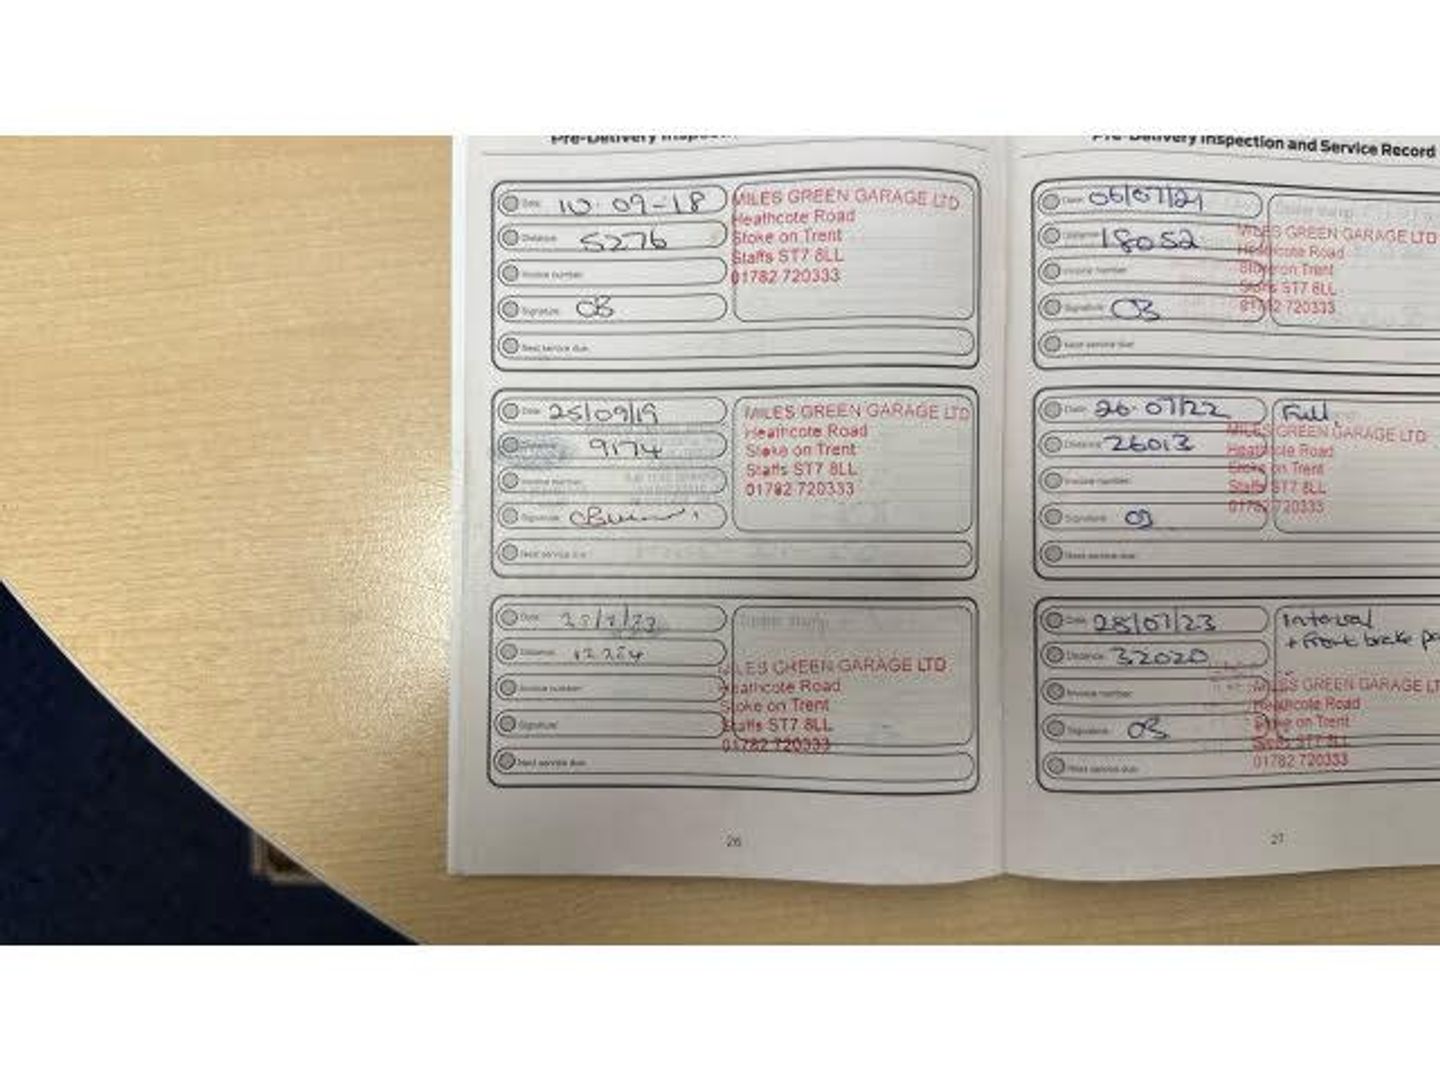 Pre-Delivery Inspection
Date 10-09-18
Distance 5276
Invoice number
Signature OB
Next service due
MILES GREEN GARAGE LTD
Heathcote Road
Stoke on Trent
Staffs ST7 8LL
01782 720333
Date 25/09/19
Distance 9174
Invoice number
Signature
Next service due
MILES GREEN GARAGE LTD
Heathcote Road
Stoke on Trent
Staffs ST7 8LL
01782 720333
Date
Distance
Invoice number
Signature
Next service due
MILES GREEN GARAGE LTD
Heathcote Road
Stoke on Trent
Staffs ST7 8LL
01782 720333
26
Pre-Delivery Inspection and Service Record
Date 06/07/21
Distance 18052
Invoice number
Signature OB
Next service due
MILES GREEN GARAGE LTD
Heathcote Road
Stoke on Trent
Staffs ST7 8LL
01782 720333
Date 26-07/22
Distance 26013
Invoice number
Signature OB
Next service due
Full
MILES GREEN GARAGE LTD
Heathcote Road
Stoke on Trent
Staffs ST7 8LL
01782 720333
Date 28/07/23
Distance 32020
Invoice number
Signature OB
Next service due
Interval
+ Front brake
MILES GREEN GARAGE
Heathcote Road
Stoke on Trent
Staffs ST7 8LL
01782 720333
27